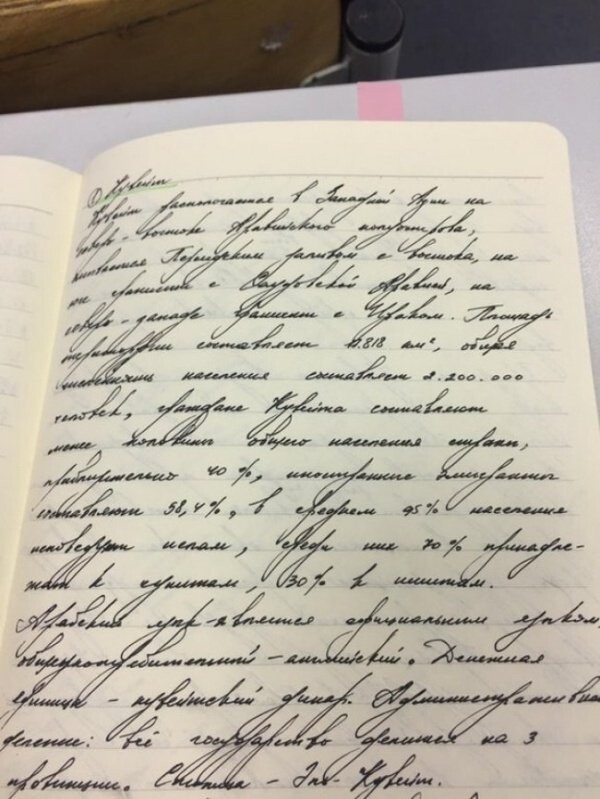 ① Кувейт
Кувейт расположенное в Западной Азии на
северо-востоке Аравийского полуострова,
омывается Персидским заливом с востока, на
юге граничит с Саудовской Аравией, на
северо-западе граничит с Ираком. Площадь
территории составляет 17.818 км², общая
численность населения составляет 2.200.000
человек, граждане Кувейта составляют
менее половины общего населения страны,
приблизительно 40%, иностранные эмигранты
составляют 58,4%, в среднем 95% населения
исповедуют ислам, среди них 70% принадле-
жат к суннитам, 30% к шиитам.
Арабский язык-является официальным языком,
общеупотребительный - английский. Денежная
единица - кувейтский динар. Административное
деление: всё государство делится на 3
провинции. Столица - Эль-Кувейт.